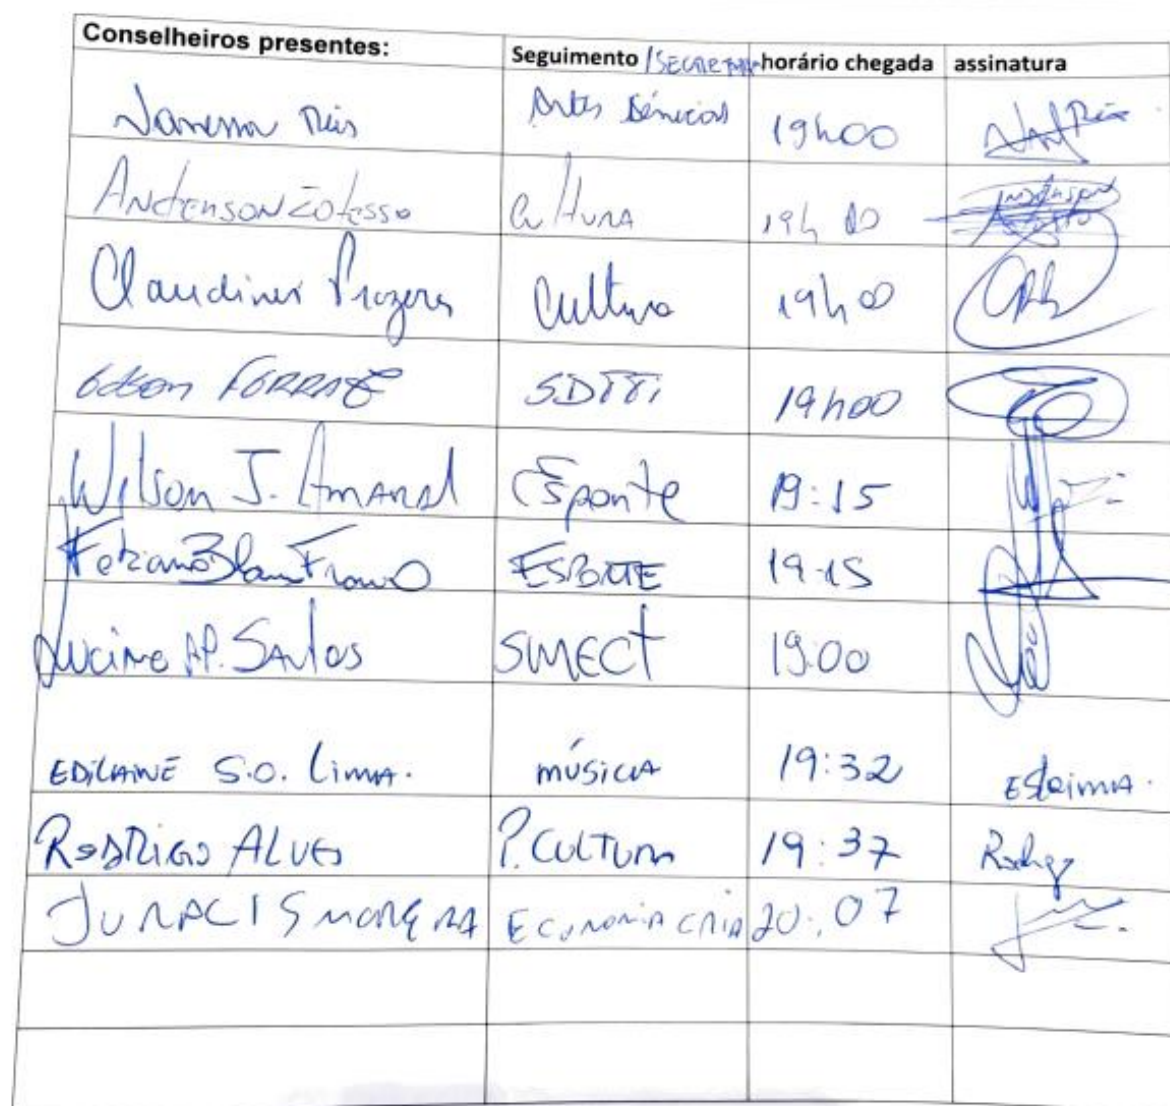 Conselheiros presentes: Seguimento /SECRETARIA horário chegada assinatura
Vanessa Reis Artes Cênicas 19h00
Anderson Zotesso Cultura 19h00
Claudinei Cultura 19h00
Edson SDTTI 19h00
Wilson J. Amaral Esporte 19:15
Franco ESPORTE 19:15
Lucine AP. Santos SMECT 19:00
EDILAINE S.O. Lima. música 19:32
RODRIGO ALVES P. CULTURA 19:37 Rodrigo
JURACI S MOREIRA ECONOMIA CRIA 20:07